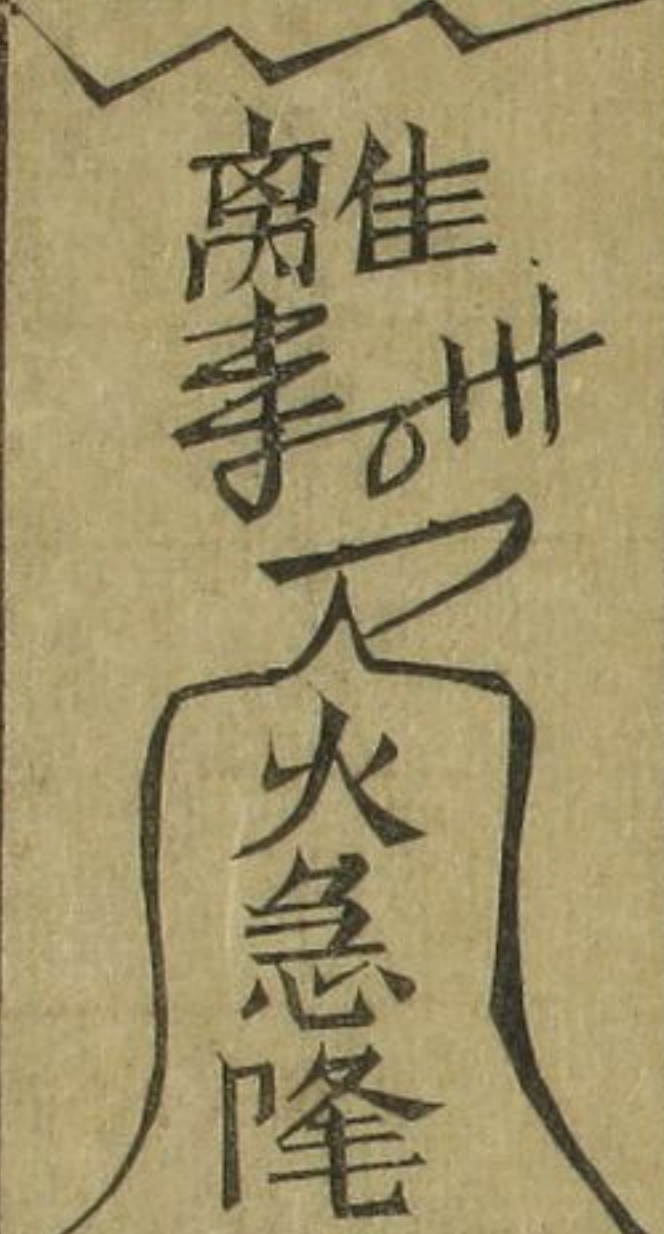 離
火
急
隆